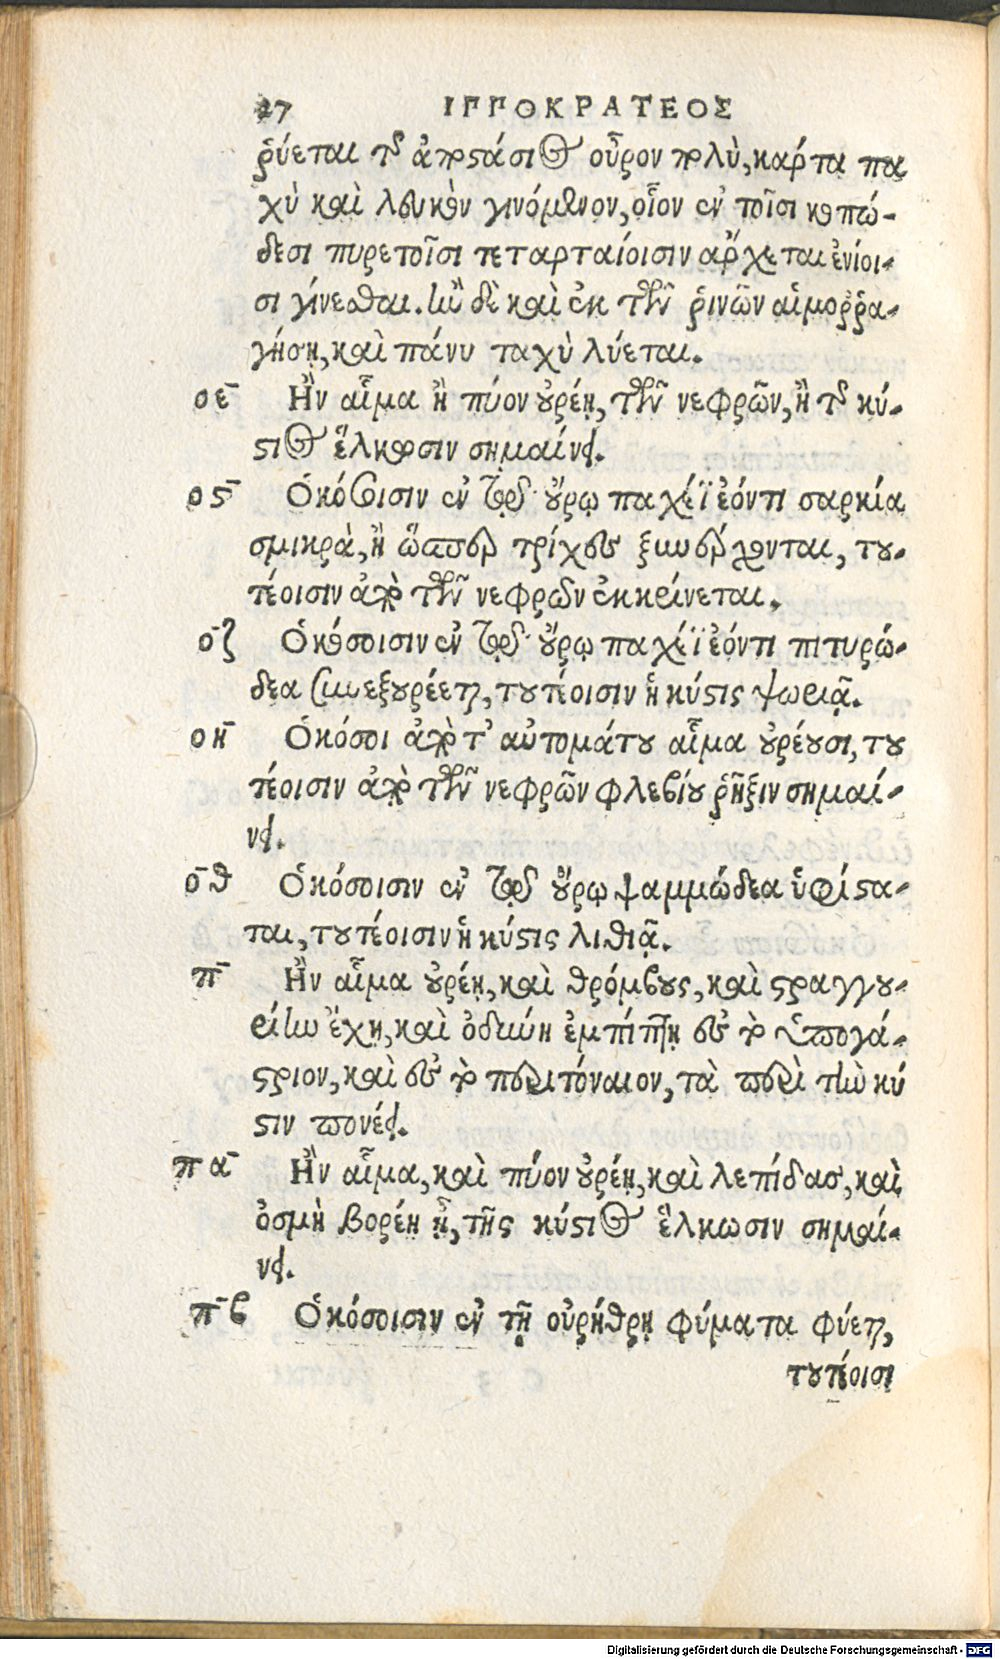 27 ΙΠΠΟΚΡΑΤΕΟΣ
ῥύεται τῆς ἀποστάσιος οὖρον πολὺ, κάρτα πα
χὺ καὶ λευκὸν γινόμενον, οἷον ἐν τοῖσι κοπώ-
δεσι πυρετοῖσι τεταρταίοισιν ἄρχεται ἐνίοι-
σι γίνεσθαι. ἢν δὲ καὶ ἐκ τῶν ῥινῶν αἱμοῤῥα-
γήσῃ, καὶ πάνυ ταχὺ λύεται.
οε Ἢν αἷμα ἢ πύον οὐρέῃ, τῶν νεφρῶν, ἢ τῆς κύ-
στιος ἕλκωσιν σημαίνει.
ος Ὁκόσοισιν ἐν τῷ οὔρῳ παχέϊ ἐόντι σαρκία
σμικρὰ, ἢ ὥσπερ τρίχες ξυνεξέρχονται, του-
τέοισιν ἀπὸ τῶν νεφρῶν ἐκκρίνεται.
οζ Ὁκόσοισιν ἐν τῷ οὔρῳ παχέϊ ἐόντι πιτυρώ-
δεα συνεξουρέεται, τουτέοισιν ἡ κύστις ψωριᾷ.
οη Ὁκόσοι ἀπὸ τ' αὐτομάτου αἷμα οὐρέουσι, του
τέοισιν ἀπὸ τῶν νεφρῶν φλεβίου ῥῆξιν σημαί-
νει.
οθ Ὁκόσοισιν ἐν τῷ οὔρῳ ψαμμώδεα ὑφίστα-
ται, τουτέοισιν ἡ κύστις λιθιᾷ.
π Ἢν αἷμα οὐρέῃ, καὶ θρόμβους, καὶ στραγγου-
ρίην ἔχῃ, καὶ ὀδύνη ἐμπίπτῃ ἐς τὸ ὑπογά-
στριον, καὶ ἐς τὸ περιτόναιον, τὰ περὶ τὴν κύ
στιν πονέει.
πα Ἢν αἷμα, καὶ πύον οὐρέῃ, καὶ λεπίδας, καὶ
ὀσμὴ βορέη ᾖ, τῆς κύστιος ἕλκωσιν σημαί-
νει.
πβ Ὁκόσοισιν ἐν τῇ οὐρήθρῃ φύματα φύεται,
τουτέοισι
Digitalisierung gefördert durch die Deutsche Forschungsgemeinschaft - DFG